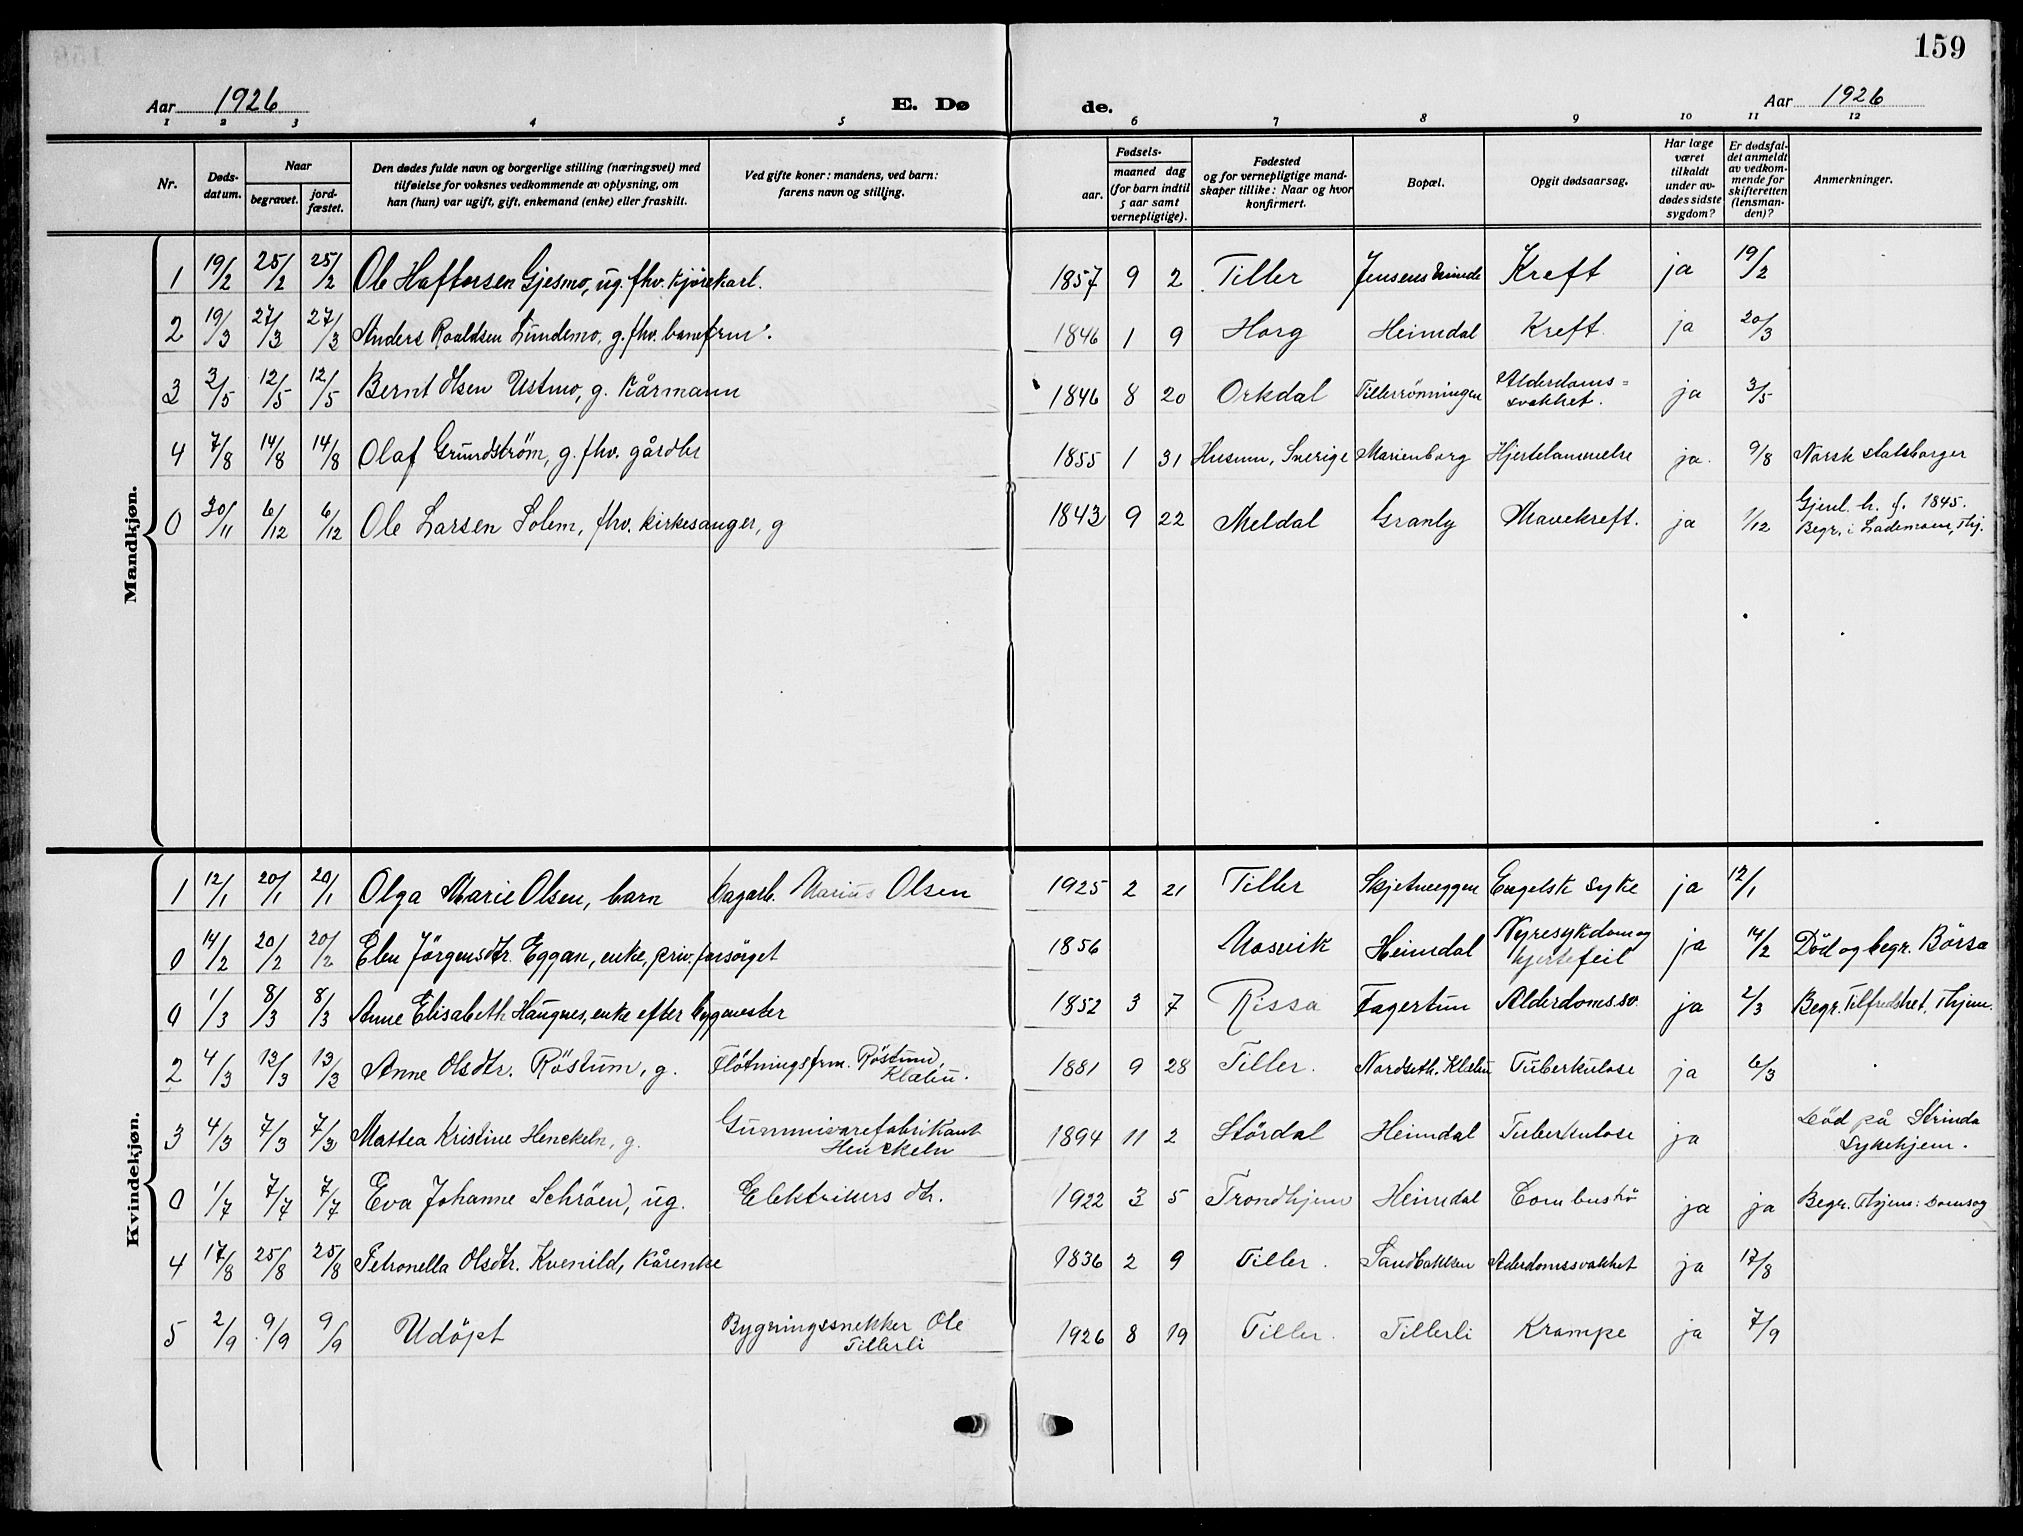 159
Aar 1926 E. Dø de. Aar 1926
1 2 3 4 5 6 7 8 9 10 11 12
Nr.
Døds-
datum.
Naar
begravet.
jord-
fæstet.
Den dødes fulde navn og borgerlige stilling (næringsvei) med
tilføielse for voksnes vedkommende av oplysning, om
han (hun) var ugift, gift, enkemand (enke) eller fraskilt.
Ved gifte koner: mandens, ved barn:
farens navn og stilling.
Fødsels-
aar.
maaned dag
(for barn indtil
5 aar samt
vernepligtige).
Fødested
og for vernepligtige mand-
skaper tillike: Naar og hvor
konfirmert.
Bopæl.
Opgit dødsaarsag.
Har læge
været
tilkaldt
under av-
dødes sidste
sygdom?
Er dødsfal-
det anmeldt
av vedkom-
mende for
skifteretten
(lensman-
den)?
Anmerkninger.
Mandkjøn.
1 19/2 25/2 25/2 Ole Haftorsen Gjesmo, ug. fhv. kjørekarl. 1857 9 2 Tiller Jensens minde Kreft ja 19/2
2 19/3 27/3 27/3 Anders Roaldsen Lundemo, g. fhv. baneform. 1846 1 9 Horg Heimdal Kreft. ja 20/3
3 3/5 12/5 12/5 Bernt Olsen Ustmo, g. kårmann 1846 8 20 Orkdal Tillerrønningen Alderdoms=
svakhet. ja 3/5
4 7/8 14/8 14/8 Olaf Grundström, g. fhv. gårdbr 1855 1 31 Husum, Sverige Marienborg Hjertelammelse ja. 9/8 Norsk statsborger
0 30/11 6/12 6/12 Ole Larsen Solem, fhv. kirkesanger, g 1843 9 22 Meldal Granly Mavekreft. ja 1/12 Gjenl. h. f. 1845.
Begr. i Lademoen, Thj.
Kvindekjøn.
1 12/1 20/1 20/1 Olga Marie Olsen, barn Dagarb. Marius Olsen 1925 2 21 Tiller Skjetneeggen Engelsk syke ja 12/1
0 14/2 20/2 20/2 Elen Jörgensdtr. Eggan, enke, priv. forsörget 1856 Mosvik Heimdal Nyresykdom og
hjertefeil ja 14/2 Död og begr. Börsa
0 1/3 8/3 8/3 Anne Elisabeth Haugnes, enke efter bygmester 1852 3 7 Rissa Fagertun Alderdomssv. ja 2/3 Begr. Tilfredshet, Thjem.
2 4/3 13/3 13/3 Anne Olsdtr. Röstum, g. Flötningsfrm. Röstum,
Klæbu. 1881 9 28 Tiller. Nordseth. Klæbu Tuberkulose ja 6/3
3 4/3 7/3 7/3 Mattea Kristine Henckeln, g. Gummivarefabrikant
Henckeln 1894 11 2 Stördal Heimdal Tuberkulose ja Död på Strinda
Sykehjem.
0 1/7 7/7 7/7 Eva Johanne Schröen, ug. Elektrikers dtr. 1922 3 5 Trondhjem Heimdal Combustio ja ja Begr. Thjems: Domsog
4 17/8 25/8 25/8 Petronella Olsdtr. Kvenild, kårenke 1836 2 9 Tiller. Sandbakken Alderdomssvakhet ja 17/8
5 2/9 9/9 9/9 Udöpt Bygningssnekker Ole
Tillerli 1926 8 19 Tiller. Tillerli Krampe ja 7/9